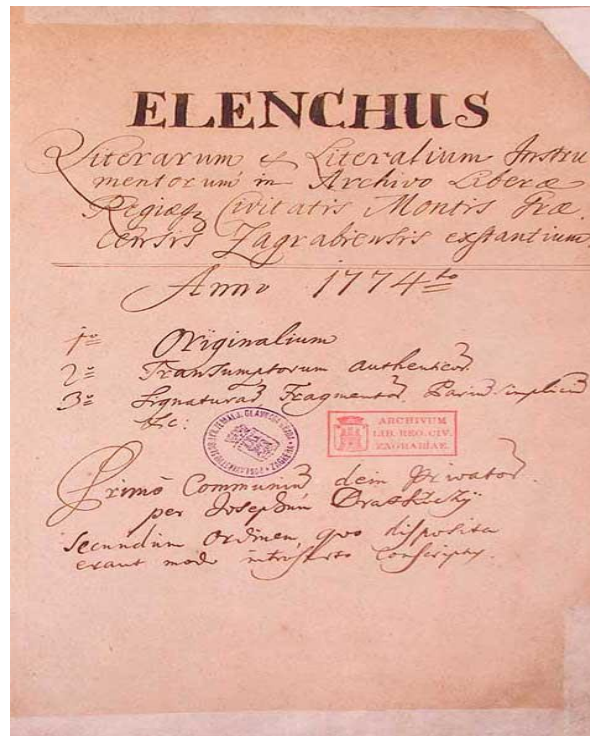 ELENCHUS
Literarum & Literalium Instru
mentorum in Archivo Liberæ
Regiæq Civitatis Montis Græ
censis Zagrabiensis exstantium
Anno 1774to
1o Originalium
2o Transumptorum authenticor
3o Signatura Fragmentor Parium simplicium
&c:
ARCHIVUM
LIB. REG. CIV.
ZAGRABIAE
Primò Communium dein Privator
per Josephum
secundum Ordinem, quo disposita
erant modo conscriptus